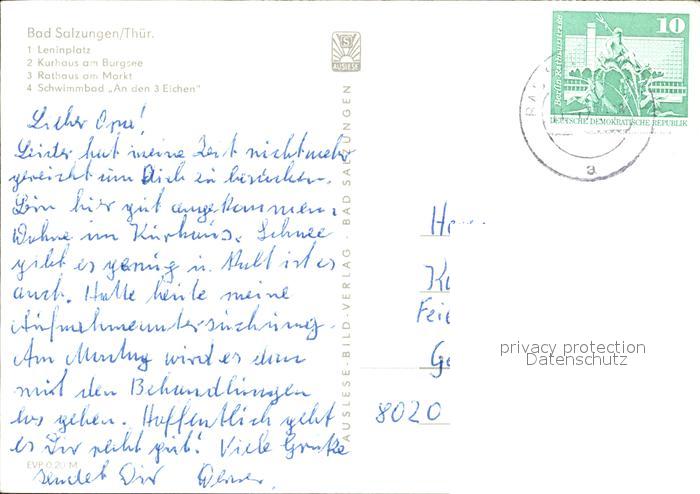 Bad Salzungen/Thür.
1 Leninplatz
2 Kurhaus am Burgsee
3 Rathaus am Markt
4 Schwimmbad „An den 3 Eichen"
AUSLESE
AUSLESE-BILD-VERLAG · BAD SALZUNGEN
10
Berlin · Rathausstraße
DEUTSCHE DEMOKRATISCHE REPUBLIK
BAD
a
Lieber Opa!
Leider hat meine Zeit nicht mehr
gereicht um Dich zu besuchen.
Bin hier gut angekommen.
Wohne im Kurhaus. Schnee
gibt es genug u. kalt ist es
auch. Hatte heute meine
Aufnahmeuntersuchung.
Am Montag wird es dann
mit den Behandlungen
los gehen. Hoffentlich geht
es Dir recht gut! Viele Grüße
sendet Dir Werner.
H
K
Fei
Ge
8020
privacy protection
Datenschutz
EVP 0,20 M